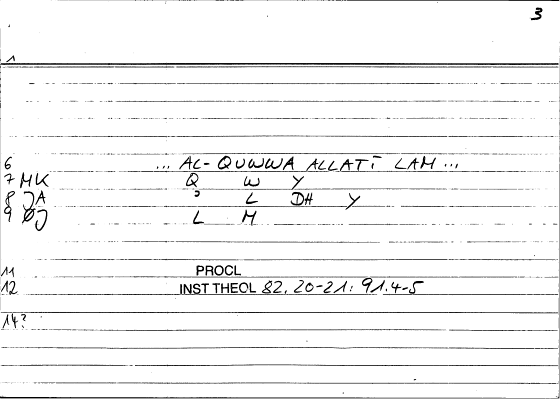 3
1
6 ... AL-QUWWA ALLATĪ LAM ...
7 MK Q W Y
8 JA ʾ L DH Y
9 ØJ L M
11 PROCL
12 INST THEOL 82, 20-21: 91.4-5
14?